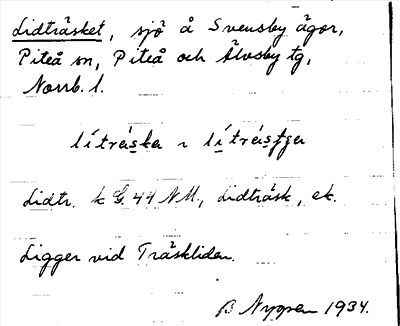 Lidträsket, sjö å Svensby ägor,
Piteå sn, Piteå och Älvsby tg,
Norrb. l.
lítráska ~ lítrástga
Lidtr. k G. 44 NM, Lidträsk, ek.
Ligger vid Träskliden.
B Nygren 1934.